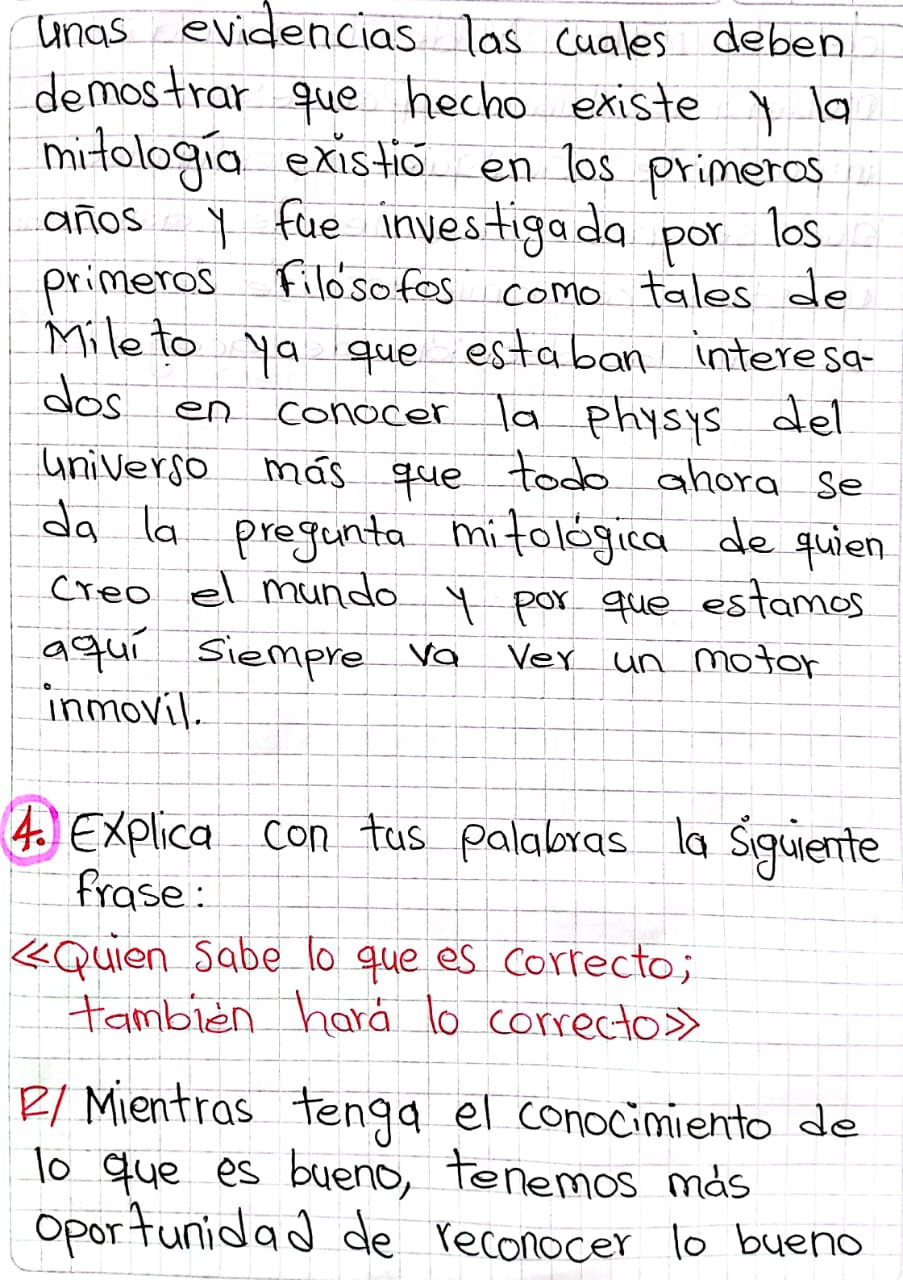 unas evidencias las cuales deben
demostrar que hecho existe y la
mitología existió en los primeros
años y fue investigada por los
primeros filósofos como tales de
Mileto ya que estaban interesa-
dos en conocer la physys del
universo más que todo ahora se
da la pregunta mitológica de quien
creo el mundo y por que estamos
aquí siempre va ver un motor
inmovil.
4. Explica con tus palabras la siguiente
frase:
«Quien sabe lo que es correcto;
también hará lo correcto»
R/ Mientras tenga el conocimiento de
lo que es bueno, tenemos más
oportunidad de reconocer lo bueno